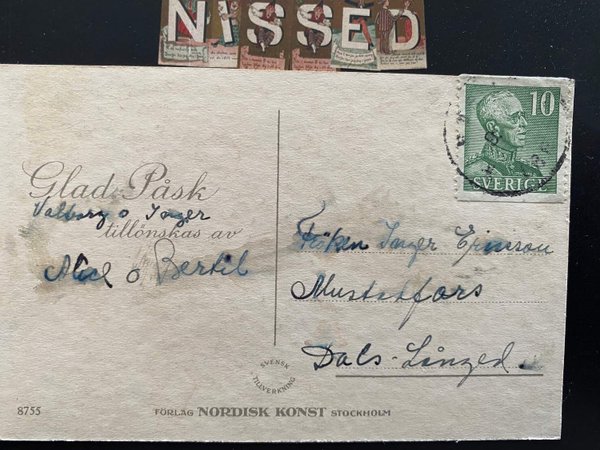 NISSED
10
SVERIGE
Glad Påsk
Valborg o Inger
tillönskas av
Alice o Bertil
Fröken Inger Ericsson
Mustadfors
Dals-Långed.
SVENSK TILLVERKNING
8755
FÖRLAG NORDISK KONST STOCKHOLM